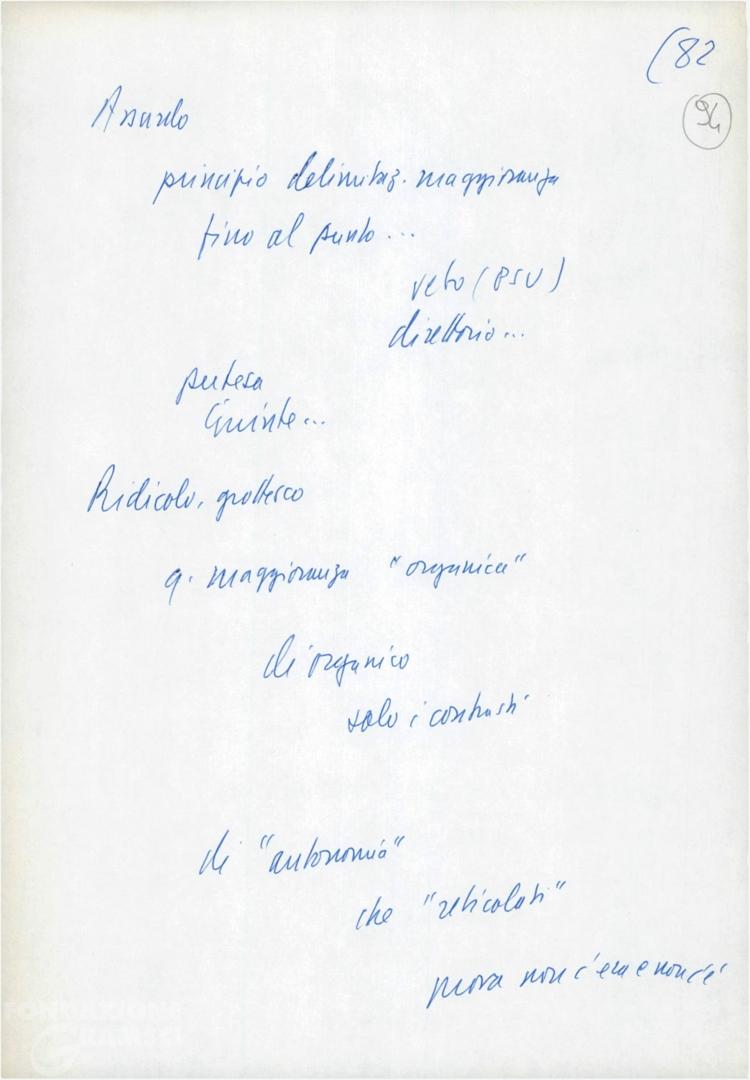 (82
94
Assurdo
principio delimitaz. maggioranza
fino al punto...
veto (PSU)
direttorio...
pretesa
Giunte...
Ridicolo, grottesco
q. maggioranza "organica"
di organico
solo i contrasti
di "autonomia"
che "reticolati"
prova non c'era e non c'è
FONDAZIONE
GRAMSCI